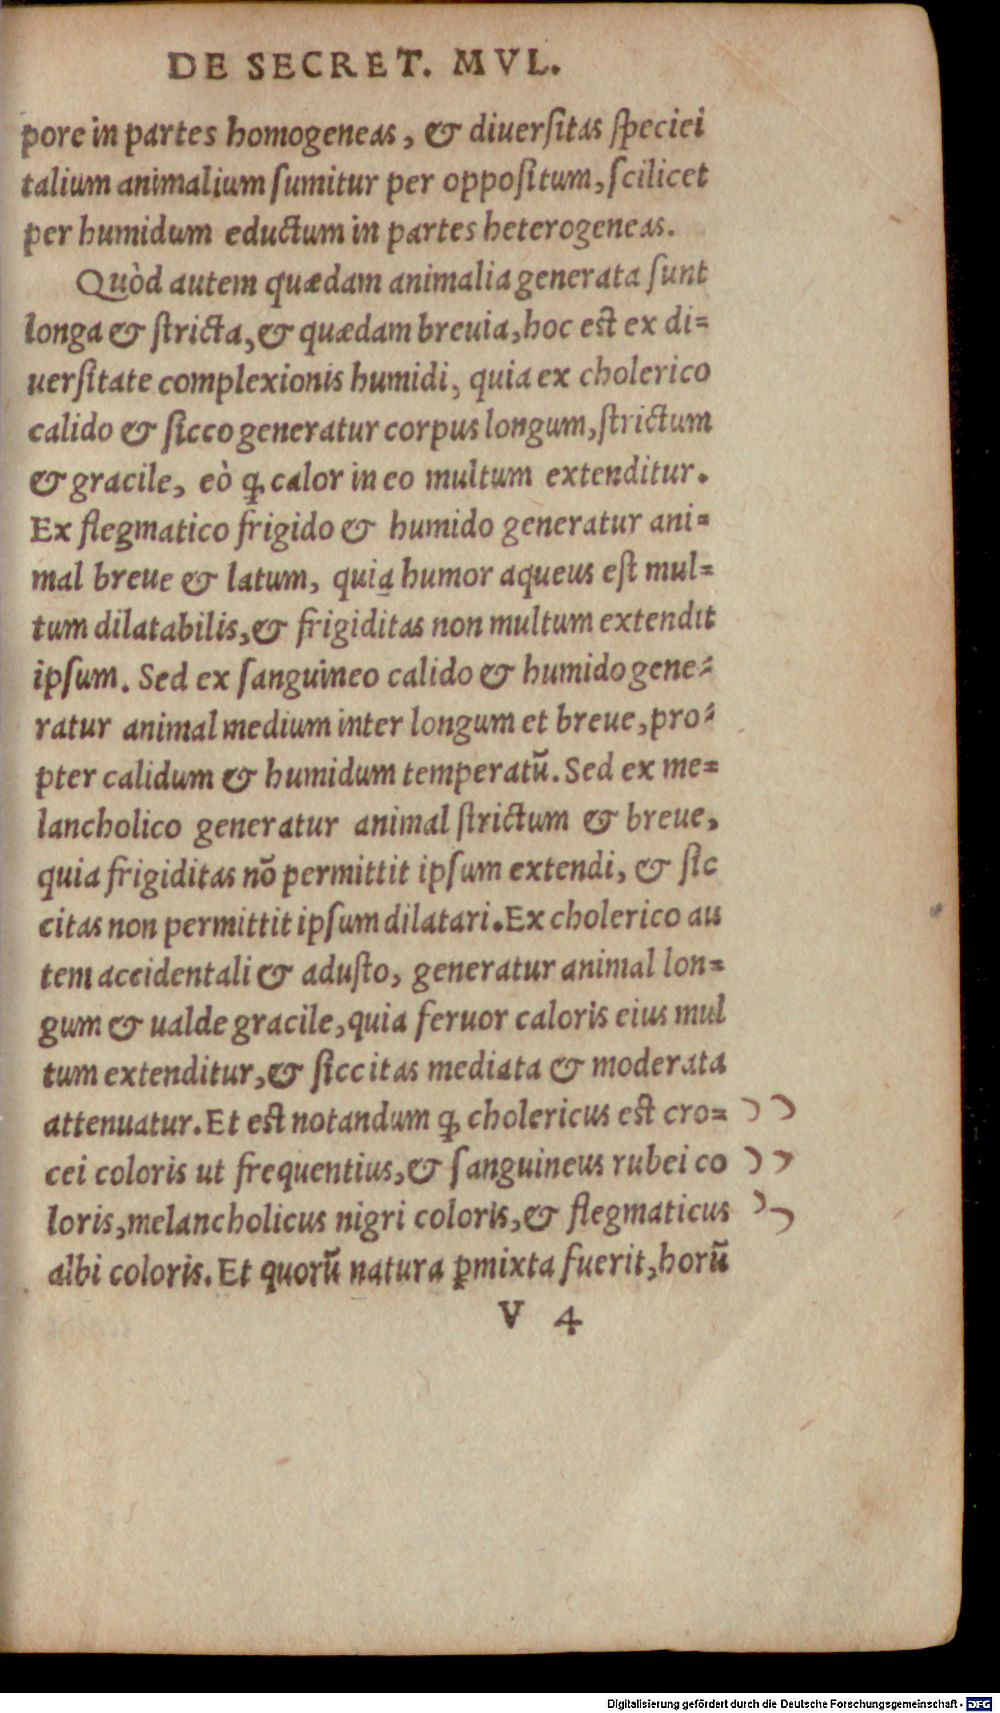 DE SECRET. MVL.
pore in partes homogeneas, & diuerſitas ſpeciei
talium animalium ſumitur per oppoſitum, ſcilicet
per humidum eductum in partes heterogeneas.
Quòd autem quædam animalia generata ſunt
longa & ſtricta, & quædam breuia, hoc eſt ex di=
uerſitate complexionis humidi, quia ex cholerico
calido & ſicco generatur corpus longum, ſtrictum
& gracile, eò ꝙ calor in eo multum extenditur.
Ex flegmatico frigido & humido generatur ani=
mal breue & latum, quia humor aqueus eſt mul=
tum dilatabilis, & frigiditas non multum extendit
ipſum. Sed ex ſanguineo calido & humido gene=
ratur animal medium inter longum et breue, pro=
pter calidum & humidum temperatũ. Sed ex me=
lancholico generatur animal ſtrictum & breue,
quia frigiditas nõ permittit ipſum extendi, & ſic
citas non permittit ipſum dilatari. Ex cholerico au
tem accidentali & aduſto, generatur animal lon=
gum & ualde gracile, quia feruor caloris eius mul
tum extenditur, & ſiccitas mediata & moderata
attenuatur. Et eſt notandum ꝙ cholericus eſt cro=
cei coloris ut frequentius, & ſanguineus rubei co
loris, melancholicus nigri coloris, & flegmaticus
albi coloris. Et quorũ natura ꝑmixta fuerit, horũ
V 4
Digitalisierung gefördert durch die Deutsche Forschungsgemeinschaft - DFG